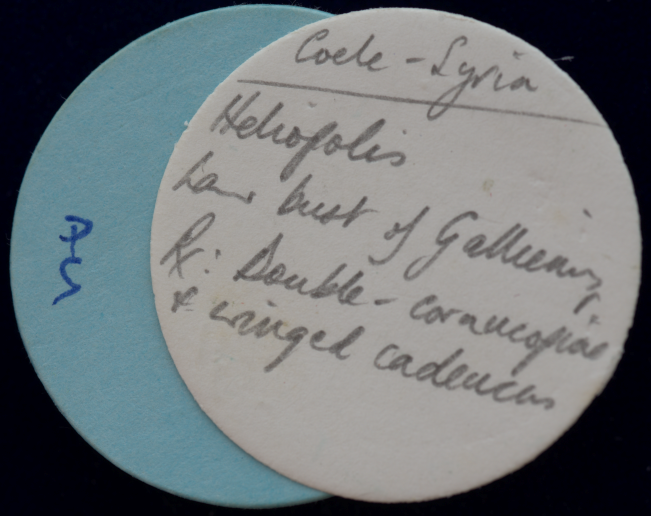 Coele-Syria
Heliopolis
bust of Gallienus,
R: Double-cornucopiae
& winged caduceus